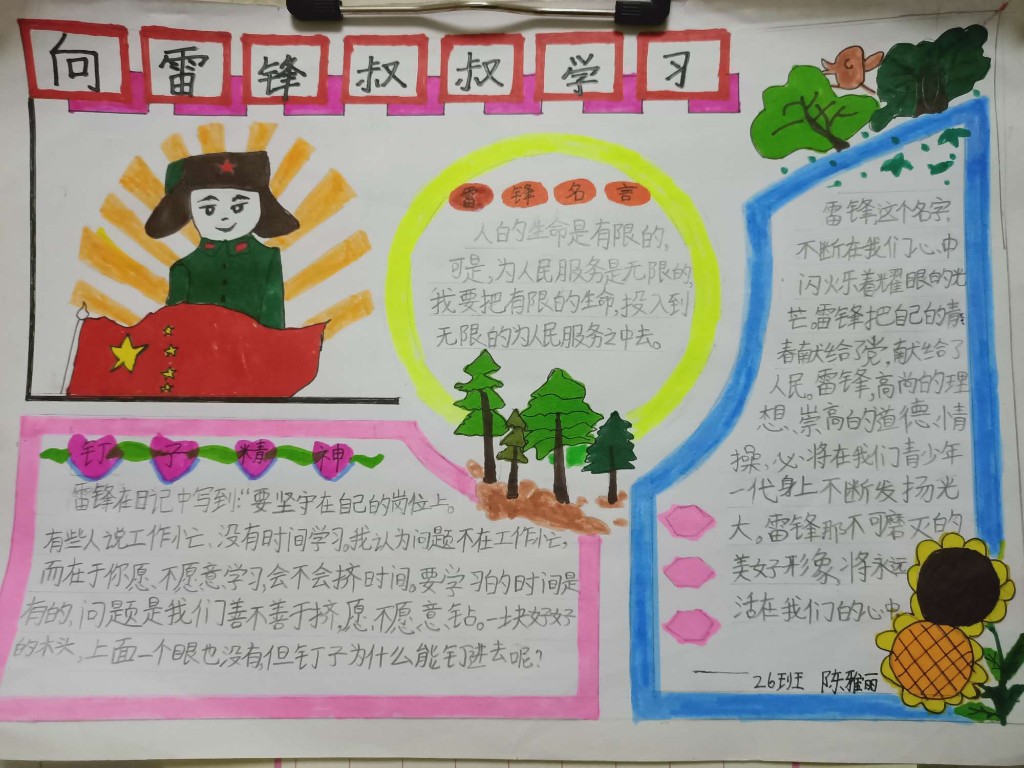 向雷锋叔叔学习
雷锋名言
人的生命是有限的,
可是,为人民服务是无限的,
我要把有限的生命,投入到
无限的为人民服务之中去。
钉子精神
雷锋在日记中写到:“要坚守在自己的岗位上。
有些人说工作忙、没有时间学习。我认为问题不在工作忙,
而在于你愿、不愿意学习,会不会挤时间。要学习的时间是
有的,问题是我们善不善于挤,愿、不愿、意、钻。一块好好
的木头,上面一个眼也没有,但钉子为什么能钉进去呢?
雷锋这个名字,
不断在我们心中
闪火乐着耀眼的光
芒。雷锋把自己的青
春献给了党,献给了
人民。雷锋,高尚的理
想、崇高的道德、情
操、必将在我们青少年
一代身上不断发扬光
大。雷锋那不可磨灭的
美好形象,将永远
活在我们的心中
——26班 陈雅丽